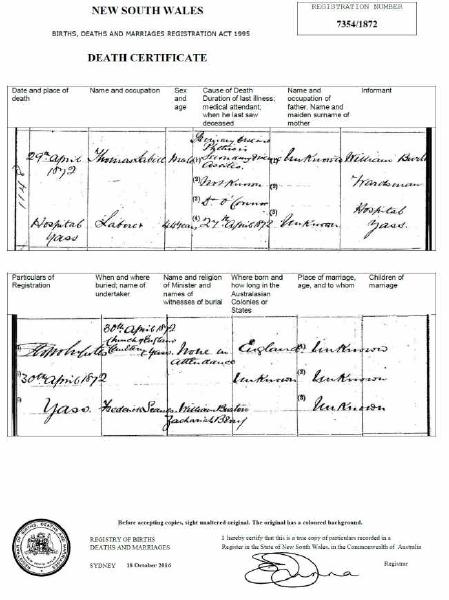 NEW SOUTH WALES
BIRTHS, DEATHS AND MARRIAGES REGISTRATION ACT 1995
DEATH CERTIFICATE
REGISTRATION NUMBER
7354/1872
Date and place of death
Name and occupation
Sex and age
Cause of Death
Duration of last illness;
medical attendant;
when he last saw
deceased
Name and
occupation of
father. Name and
maiden surname of
mother
Informant
29th April
1872
Hospital
Yass
Thomas
Laborer
Male
44 years
Primary
Secondary
(2) Not Known
(3) Dr O'Connor
(4) 27th April 1872
Unknown
Unknown
William
Wardsman
Hospital
Yass.
Particulars of
Registration
When and where
buried; name of
undertaker
Name and religion
of Minister and
names of
witnesses of burial
Where born and
how long in the
Australasian
Colonies or
States
Place of marriage,
age, and to whom
Children of
marriage
30th April 1872
Yass.
30th April 1872
Church of England
Yass
Frederick
None in
attendance
William
Zachariah
England
Unknown
(1) Unknown
(2) Unknown
(3) Unknown
Before accepting copies, sight unaltered original. The original has a coloured background.
REGISTRY OF BIRTHS
DEATHS AND MARRIAGES
SYDNEY 18 October 2016
I hereby certify that this is a true copy of particulars recorded in a
Register in the State of New South Wales, in the Commonwealth of Australia
Registrar